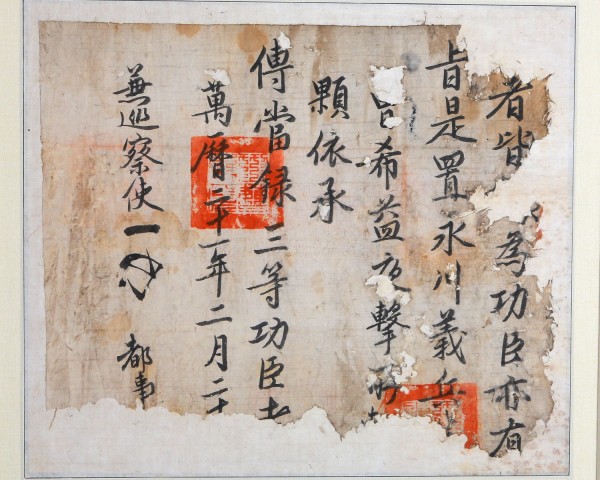 者皆 為功臣亦有
旨是置永川義兵
希益夜擊
顆依承
傳當錄三等功臣
萬曆二十一年二月二十
兼巡察使
都事